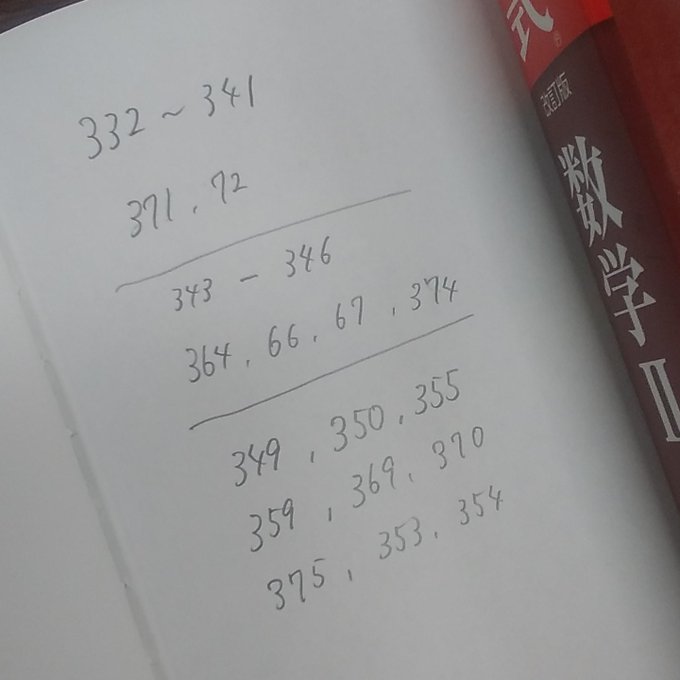 332 ~ 341
371, 72
343 - 346
364, 66, 67, 374
349, 350, 355
359, 369, 370
375, 353, 354
式
改訂版
数学Ⅱ